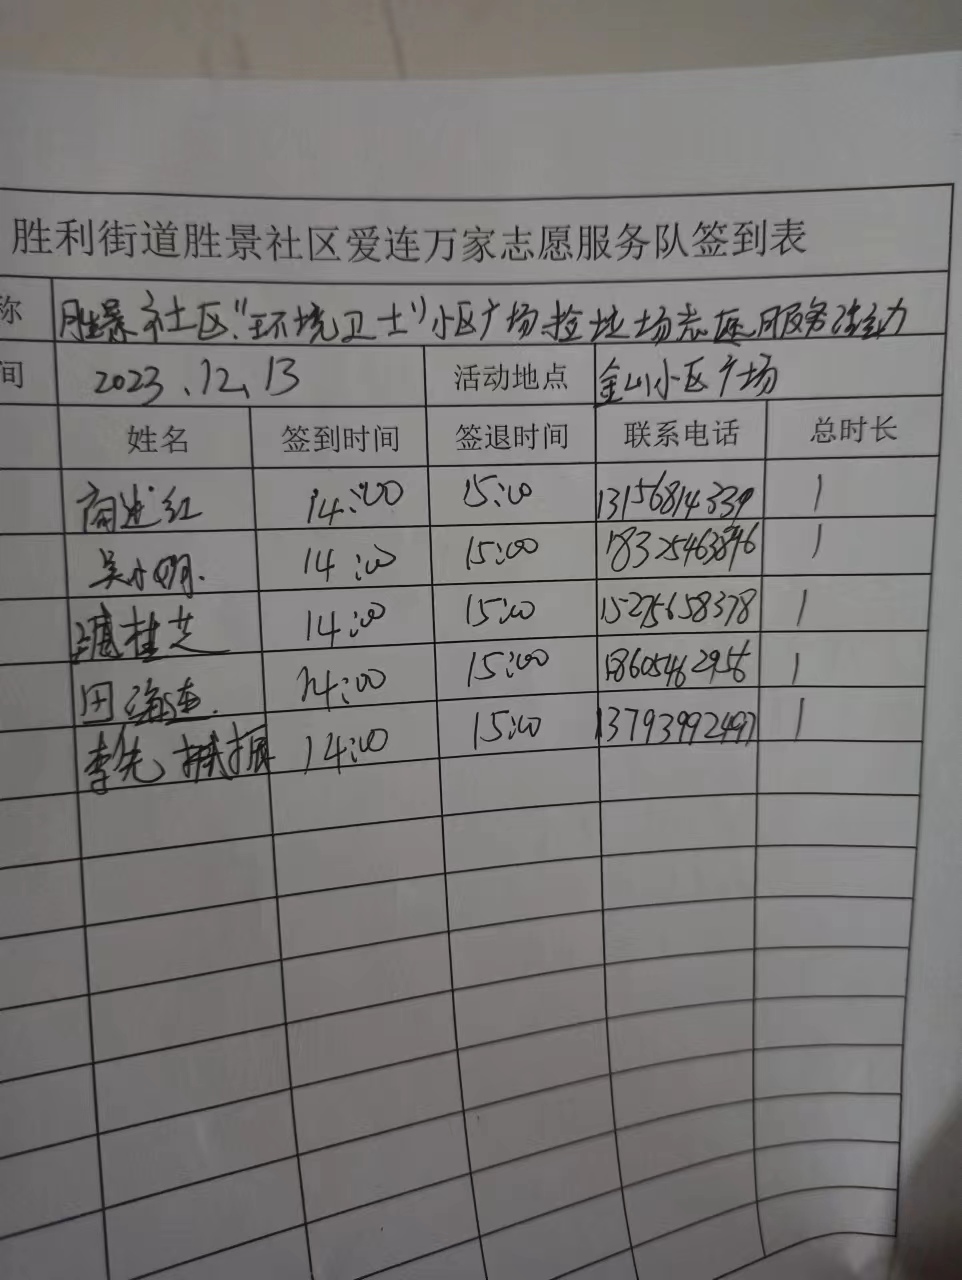 胜利街道胜景社区爱连万家志愿服务队签到表
称 胜景社区"环境卫士"小区广场捡垃圾志愿服务活动
间 2023.12.13 活动地点 金山小区广场
姓名 签到时间 签退时间 联系电话 总时长
红 14:00 15:00 13156814339 1
吴小明. 14:00 15:00 18325463846 1
桂芝 14:00 15:00 15275658378 1
田海连. 14:00 15:00 18605462956 1
李先 14:00 15:00 13793992497 1